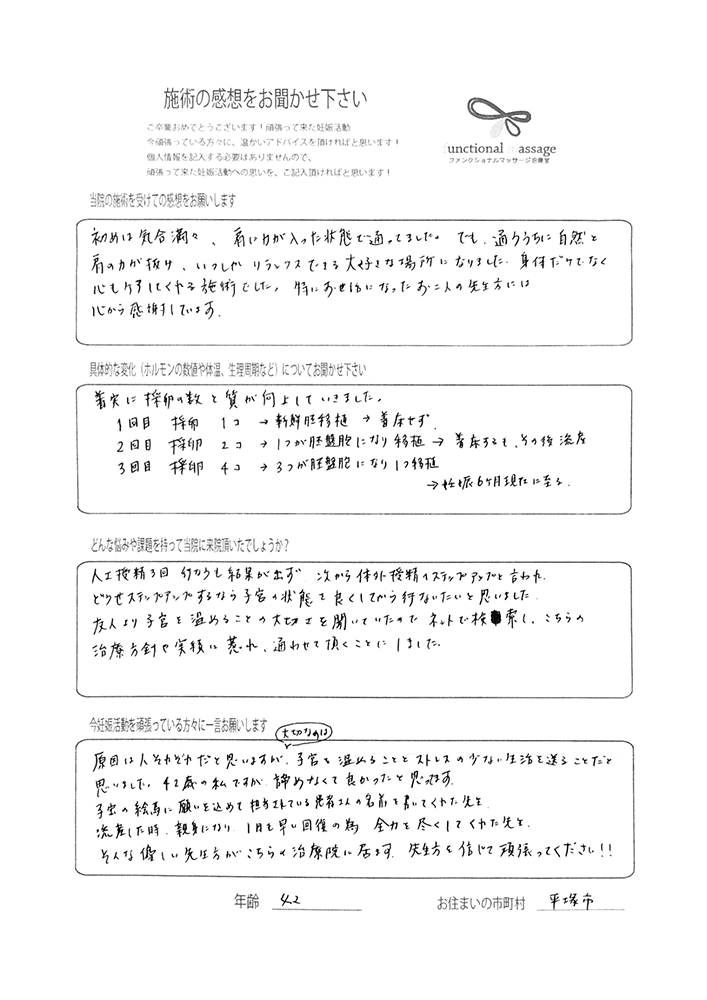 施術の感想をお聞かせ下さい
ご卒業おめでとうございます！頑張って来た妊娠活動
今頑張っている方々に、温かいアドバイスを頂ければと思います！
個人情報を記入する必要はありませんので、
頑張って来た妊娠活動への思いを、ご記入頂ければと思います！
functional massage
ファンクショナルマッサージ治療室
当院の施術を受けての感想をお願いします
初めは気合満々、肩に力が入った状態で通ってました。でも、通ううちに自然と
肩の力が抜け、いつしかリラックスできる大好きな場所になりました。身体だけでなく
心もケアしてくれる施術でした。特にお世話になったお二人の先生方には
心から感謝しています。
具体的な変化（ホルモンの数値や体温、生理周期など）についてお聞かせ下さい
着実に採卵の数と質が向上していきました。
1回目 採卵 1コ → 新鮮胚移植 → 着床せず.
2回目 採卵 2コ → 1つが胚盤胞になり移植 → 着床するも、その後流産
3回目 採卵 4コ → 3つが胚盤胞になり1つ移植
→妊娠6ヶ月現在に至る.
どんな悩みや課題を持って当院に来院頂いたでしょうか？
人工授精3回 行なうも結果が出ず 次から体外授精へステップアップと言われ.
どうせステップアップするなら子宮の状態を良くしてから行ないたいと思いました.
友人より子宮を温めることの大切さを聞いていたので ネットで検索し、こちらの
治療方針や実績に惹かれ、通わせて頂くことにしました.
今妊娠活動を頑張っている方々に一言お願いします
大切なのは
原因は人それぞれだと思いますが、子宮を温めることとストレスの少ない生活を送ることだと
思いました。42歳の私ですが 諦めなくて良かったと思ってます.
子宝の絵馬に願いを込めて担当されている患者さんの名前を書いてくれた先生.
流産した時、親身になり 1日も早い回復の為 全力を尽くしてくれた先生.
そんな優しい先生方がこちらの治療院に居ます. 先生方を信じて頑張ってください!!
年齢 42
お住まいの市町村 平塚市